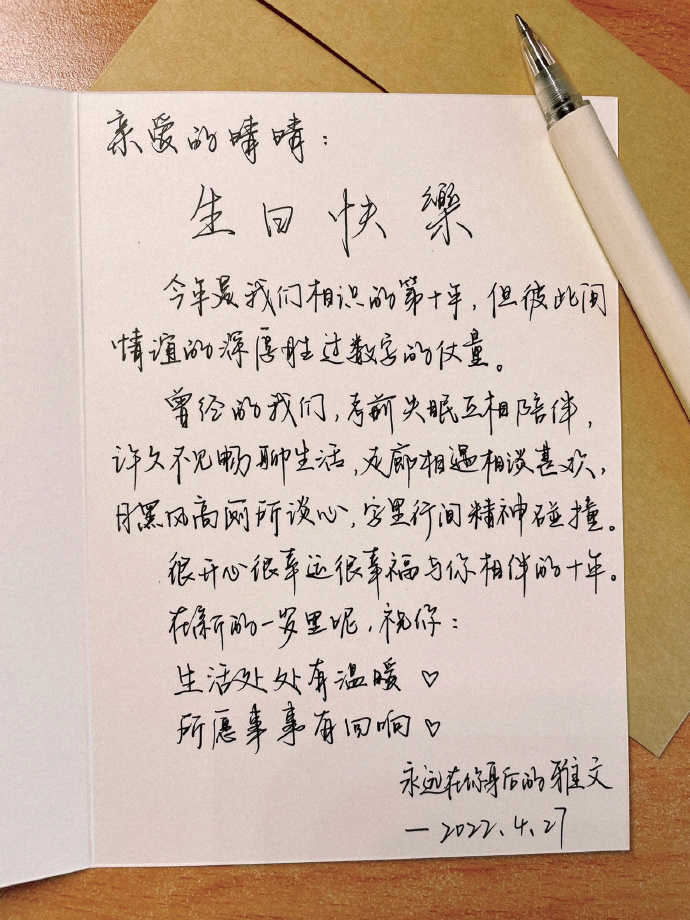 亲爱的晴晴：
生日快樂
今年是我们相识的第十年，但彼此间
情谊的深厚胜过数字的仗量。
曾经的我们，考前失眠互相陪伴，
许久不见畅聊生活，走廊相遇相谈甚欢，
月黑风高厕所谈心，字里行间精神碰撞。
很开心很幸运很幸福与你相伴的十年。
在新的一岁里呢，祝你：
生活处处有温暖♡
所愿事事有回响♡
永远在你身后的雅文
—2022.4.27